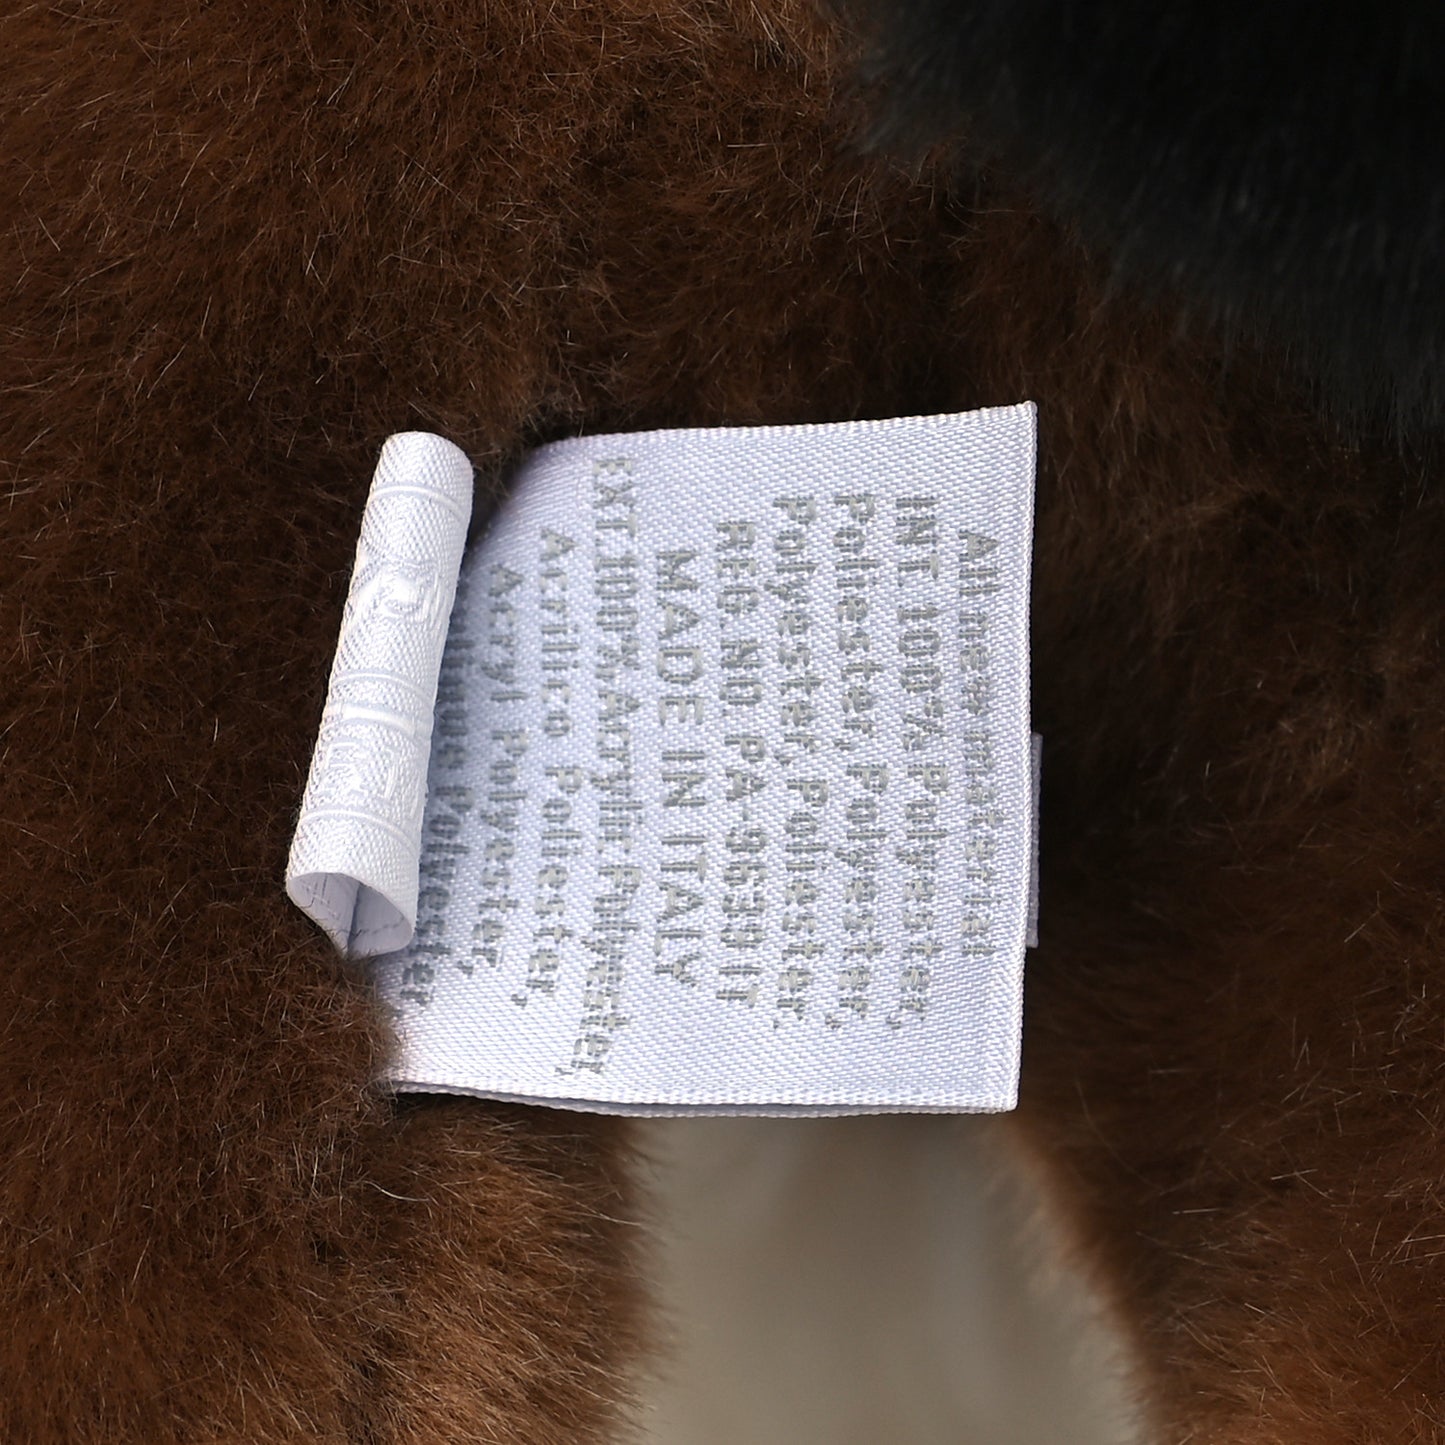 All new material
INT. 100% Polyester,
Poliester, Polyester,
Polyester, Poliester.
REG. NO. PA-9659(IT
MADE IN ITALY
EXT. 100% Acrylic Polyester,
Acrilico Poliester,
Acryl Polyester,
Poliester